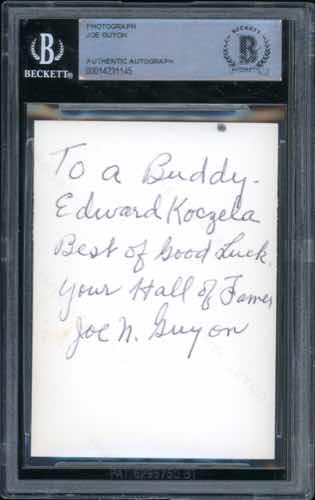 PHOTOGRAPH
JOE GUYON
BECKETT
AUTHENTIC AUTOGRAPH
00014231145
BECKETT
To a Buddy.
Edward Koczela
Best of Good Luck.
your Hall of Famer
Joe N. Guyon